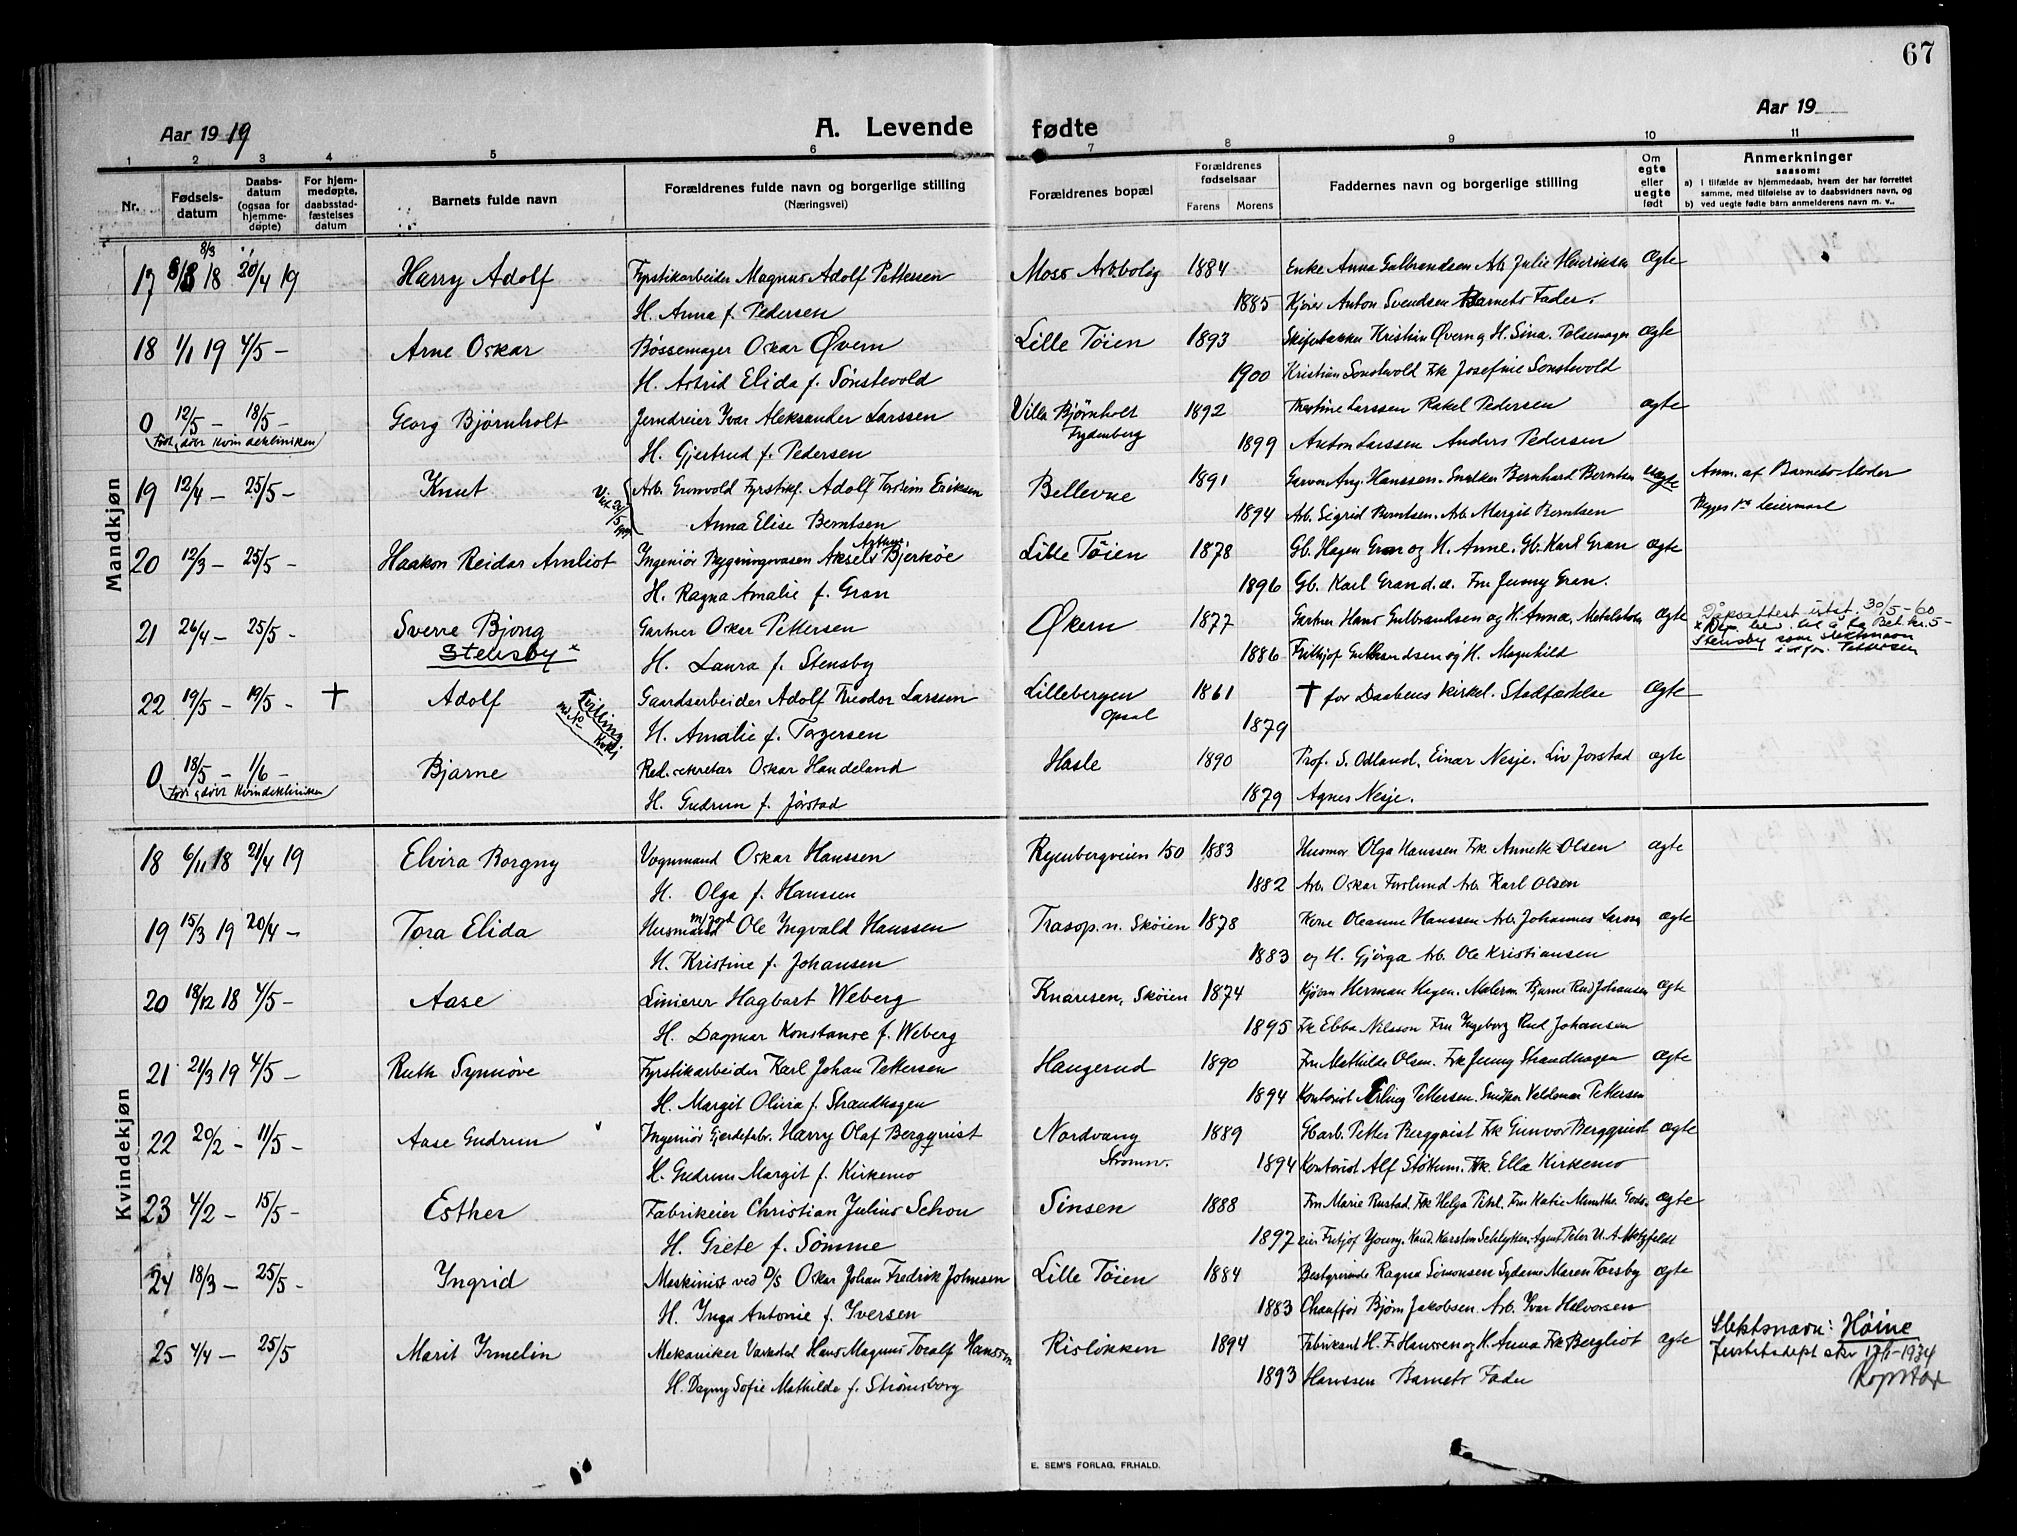 67
Aar 1919
A. Levende fødte
Aar 19
1 2 3 4 5 6 7 8 9 10 11
Nr.
Fødsels-
datum
Daabs-
datum
(ogsaa for
hjemme-
døpte)
For hjem-
medøpte,
daabsstad-
fæstelses
datum
Barnets fulde navn
Forældrenes fulde navn og borgerlige stilling
(Næringsvei)
Forældrenes bopæl
Forældrenes
fødselsaar
Farens Morens
Faddernes navn og borgerlige stilling
Om
egte
eller
uegte
født
Anmerkninger
saasom:
a) I tilfælde av hjemmedaab, hvem der har forrettet
samme, med tilføielse av to daabsvidners navn, og
b) ved uegte fødte barn anmelderens navn m. v..
Mandkjøn
8/3
17 18 20/4 19 Harry Adolf Fyrstikarbeider Magnus Adolf Pettersen Moss Arbbolig 1884 Enke Anna Gulbrandsen Arb. Julie Henriksen Ægte
H. Anna f. Pedersen 1885 Kjører Anton Svendsen Barnets Fader.
18 1/1 19 4/5 – Arne Oskar Bøssemager Oskar Øvern Lille Tøien 1893 Kristian Øvern og H. Sina. Pølsemager Ægte
H. Astrid Elida f. Sønstevold 1900 Kristian Sønstevold Frk Josefine Sønstevold
0 12/5 – 18/5 – Georg Bjørnholt Jerndreier Ivar Aleksander Larssen Villa Bjørnholt 1892 Thestine Larssen Rakel Pedersen ægte
Født, døbt Kvindekliniken H. Gjertrud f. Pedersen Frydenberg 1899 Anton Larssen Anders Pedersen
19 12/4 – 25/5 – Knut Arb. Grønvold Fyrstikf. Adolf Torstein Eriksen Bellevue 1891 Garver Aug. Hanssen. Snekker Bernhard Berntsen uægte Anm. af Barnets Moder
Anna Elise Berntsen 1894 Arb. Sigrid Berntsen. Arb. Margit Berntsen Begges 1ste leiermaal
20 12/3 – 25/5 – Haakon Reidar Arnliot Ingeniør Bygningsvæsen Aksel Arthur Bjerkøe Lille Tøien 1878 Gb. Hagen Gran og H. Anne. Gb. Karl Gran Ægte
H. Ragna Amalie f. Gran 1896 Gb. Karl Gran d.æ. Fru Jenny Gran.
21 26/4 – 25/5 – Sverre Bjong Gartner Oskar Pettersen Økern 1877 Gartner Hans Gulbrandsen og H. Anna, Ægte Dåpsattest utst. 30/5-60
Stensby x H. Laura f. Stensby 1886 Frithjof Gulbrandsen og H. Magnhild
x bev. til å ta Bet. kr. 5-
Stensby som slektsnavn
istf. Pettersen
22 19/5 – 19/5 – † Adolf Tvilling Gaardsarbeider Adolf Theodor Larssen Lillebergen 1861 † før Daabens kirkel. Stadfæstelse Ægte
H. Amalie f. Torgersen Opsal 1879
0 18/5 – 1/6 – Bjarne Red. sekretær Oskar Handeland Hasle 1890 Prof. S. Odland, Einar Nesje. Liv Jørstad ægte
Født, døbt Kvindekliniken H. Gudrun f. Jørstad 1879 Agnes Nesje.
Kvindekjøn
18 6/11 18 21/4 19 Elvira Borgny Vognmand Oskar Hanssen Ryenbergveien 150 1883 Husmor Olga Hanssen Frk. Annette Olsen ægte
H. Olga f. Hanssen 1882 Arb. Oskar Forslund Arb. Karl Olsen
19 15/3 19 20/4 – Tora Elida Husmand m/jord Ole Ingvald Hanssen Trasop. n. Skøien 1878 Kone Oleanne Hanssen Arb. Johannes Larsen ægte
H. Kristine f. Johansen 1883 og H. Gjørga Arb. Ole Kristiansen
20 18/12 18 4/5 – Aase Linierer Hagbart Weberg Knarresen, Skøien 1874 Kjøbm Herman Hagen. Malerm Bjarne Rud Johansen Ægte
H. Dagmar Konstanse f. Weberg 1895 Frk Ebba Nilsson Fru Ingeborg Rud Johansen
21 21/3 19 4/5 – Ruth Synnøve Fyrstikarbeider Karl Johan Pettersen Haugerud 1890 Fru Mathilde Olsen. Frk Jenny Strandhagen Ægte
H. Margit Olivia f. Strandhagen 1894 Kontorist Erling Pettersen. Snedker Valdemar Pettersen
22 20/2 – 11/5 – Aase Gudrun Ingeniør Gjerdefabr. Harry Olaf Bergqvist Nordvang 1889 Petter Bergqvist Frk Gunvor Bergqvist ægte
H. Gudrun Margit f. Kirkemo Strømsv. 1894 Kontorist Alf Stokum. Frk. Ella Kirkemo
23 4/2 – 15/5 – Esther Fabrikeier Christian Julius Schou Sinsen 1888 Fru Marie Rustad. Frk Helga Fru Katie Munthe. Gods- ægte
H. Grete f. Sømme 1897 eier Fritjof Young. Kand. Karsten Agent Peter U. A. Motzfeldt
24 18/3 – 25/5 – Ingrid Maskinist ved D/S Oskar Johan Fredrik Johnsen Lille Tøien 1884 Bestyrerinde Ragna Simonsen Sydame Maren Torsby ægte
H. Inga Antonie f. Iversen 1883 Chauffør Bjørn Jakobsen. Arb. Ivar Halvorsen
25 4/4 – 25/5 Marit Irmelin Mekaniker Værksted Hans Magnus Toralf Hanssen Risløkken 1894 Fabrikant H. F. Hanssen og H. Anna Frk Bergliot ægte Slektsnavn: Høine
H. Dagny Sofie Mathilde f. Strømsborg 1893 Hanssen Barnets Fader Justitsdept skr 17/1-1934
E. SEM'S FORLAG, FR.HALD.